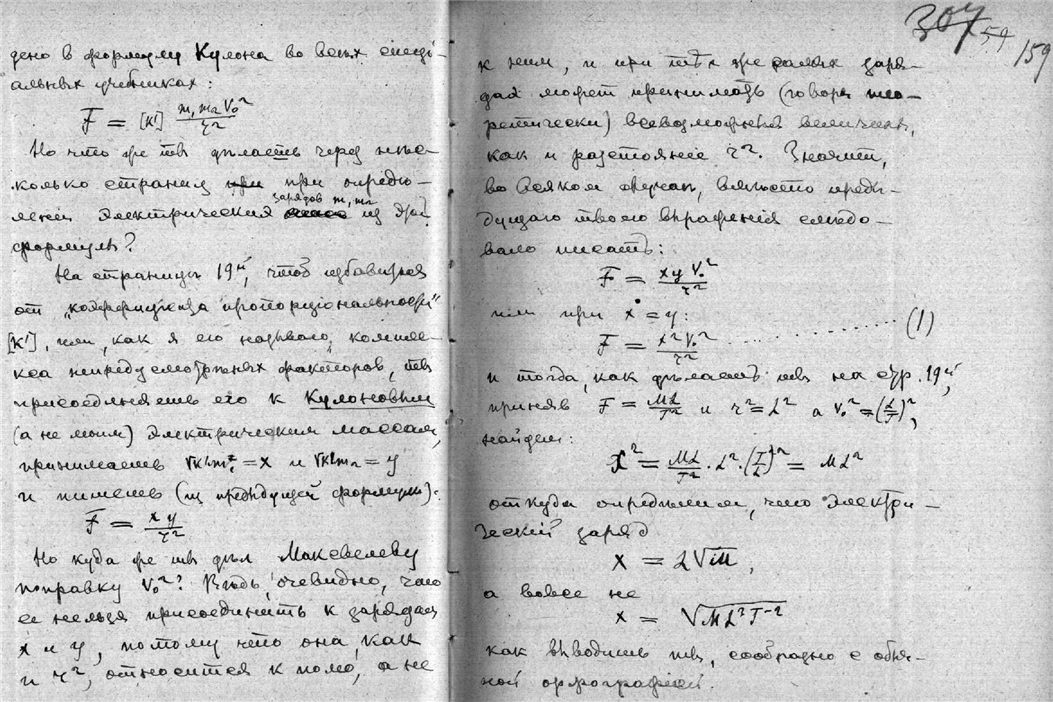 дено в формулу Кулона во всѣх спеці-
альных учебниках:
F = [K'] m₁m₂V₀² / r²
Но что же ты дѣлаешь через нѣс-
колько страниц при опредѣ-
леніи электрических зарядов m₁ m₂ из этой
формулы?
На страницѣ 19й, чтоб избавиться
от „коэффиціента пропорціональности"
[K'], или, как я его называю, комплек-
кса непредусмотрѣнных факторов, ты
присоединяешь его к Кулоновым
(а не моим) электрическим массам,
принимаешь √K'm₁ = x и √K'm₂ = y
и пишешь (из предыдущей формулы):
F = xy / r²
Но куда же ты дѣл Максвелеву
поправку V₀²? Вѣдь, очевидно, что
ее нельзя присоединить к зарядам
x и y, потому что она, как
и r², относится к полю, а не
307 59 159
к ним, и при тѣх же самых заря-
дах может принимать (говоря тео-
ретически) всевозможныя величины,
как и разстояніе r². Значит,
во всяком случаѣ, вмѣсто преды-
дущаго твоего выраженія слѣдо-
вало писать:
F = xy V₀² / r²
или при x = y:
F = x² V₀² / r² .......... (1)
и тогда, как дѣлаешь ты на стр. 19й,
приняв F = ML/T² и r² = L² а V₀² = (L/T)²,
найдем:
X² = ML/T² · L² · (T/L)² = ML²
откуда опредѣляем, что электри-
ческій заряд
x = L√M,
а вовсе не
x = √ML³T⁻²
как выводишь ты, сообразно с обыч-
ной орфографіей.